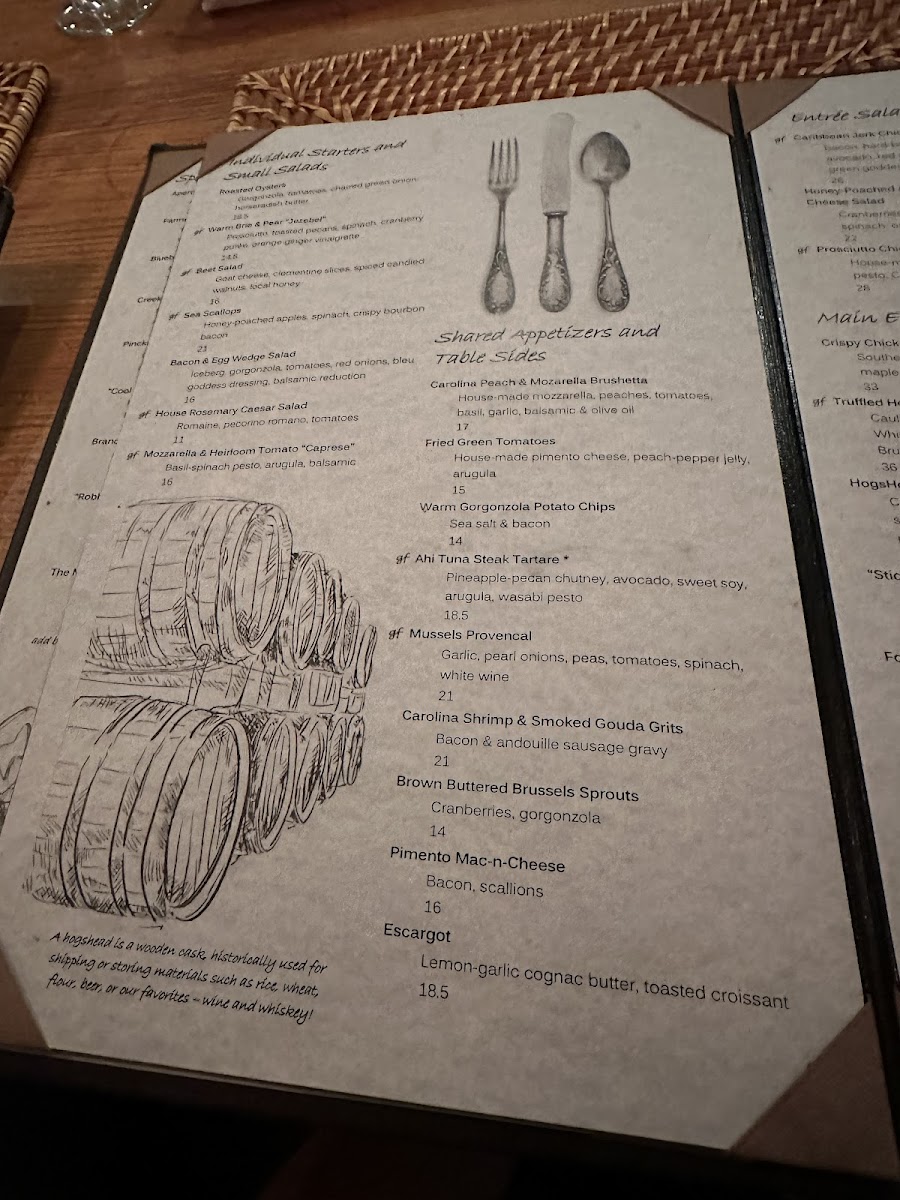 Individual Starters and
Small Salads
Roasted Oysters
Gorgonzola, tomatoes, charred green onion-
horseradish butter
18.5
gf Warm Brie & Pear "Jezebel"
Prosciutto, toasted pecans, spinach, cranberry
punke, orange ginger vinaigrette
14.5
gf Beet Salad
Goat cheese, clementine slices, spiced candied
walnuts, local honey
16
gf Sea Scallops
Honey-poached apples, spinach, crispy bourbon
bacon
21
Bacon & Egg Wedge Salad
Iceberg, gorgonzola, tomatoes, red onions, bleu
goddess dressing, balsamic reduction
16
gf House Rosemary Caesar Salad
Romaine, pecorino romano, tomatoes
11
gf Mozzarella & Heirloom Tomato "Caprese"
Basil-spinach pesto, arugula, balsamic
16
A hogshead is a wooden cask, historically used for
shipping or storing materials such as rice, wheat,
flour, beer, or our favorites – wine and whiskey!
Shared Appetizers and
Table Sides
Carolina Peach & Mozarella Brushetta
House-made mozzarella, peaches, tomatoes,
basil, garlic, balsamic & olive oil
17
Fried Green Tomatoes
House-made pimento cheese, peach-pepper jelly,
arugula
15
Warm Gorgonzola Potato Chips
Sea salt & bacon
14
gf Ahi Tuna Steak Tartare *
Pineapple-pecan chutney, avocado, sweet soy,
arugula, wasabi pesto
18.5
gf Mussels Provencal
Garlic, pearl onions, peas, tomatoes, spinach,
white wine
21
Carolina Shrimp & Smoked Gouda Grits
Bacon & andouille sausage gravy
21
Brown Buttered Brussels Sprouts
Cranberries, gorgonzola
14
Pimento Mac-n-Cheese
Bacon, scallions
16
Escargot
Lemon-garlic cognac butter, toasted croissant
18.5
Entrée Sala
gf Caribbean Jerk Chi
bacon, hard b
avocado, red
green goddes
26
Honey-Poached
Cheese Salad
Cranberries
spinach, o
22
gf Prosciutto Chi
House-m
pesto, C
28
Main E
Crispy Chick
Southe
maple
33
gf Truffled He
Caul
Whi
Bru
36
HogsHe
C
"Stic
Fo